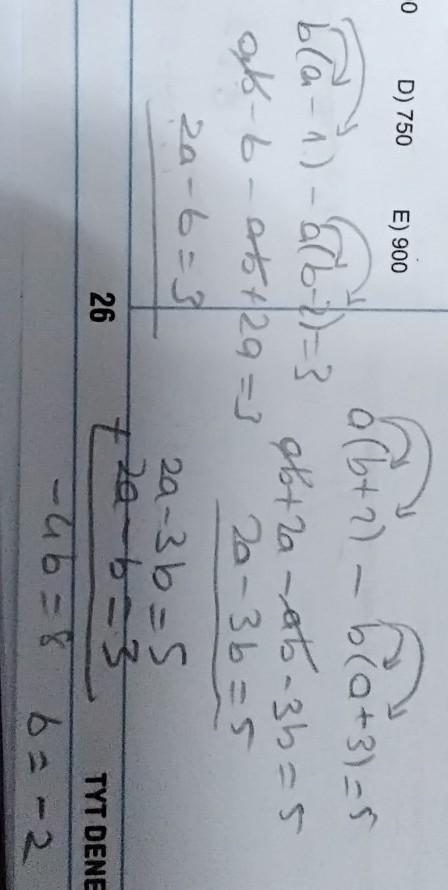 0 D) 750 E) 900
b(a-1)-a(b-2)=3
ab-b-ab+2a=3
2a-b=3
a(b+2)-b(a+3)=5
ab+2a-ab-3b=5
2a-3b=5
2a-3b=5
+ 2a-b=3
-4b=8 b=-2
26 TYT DENE